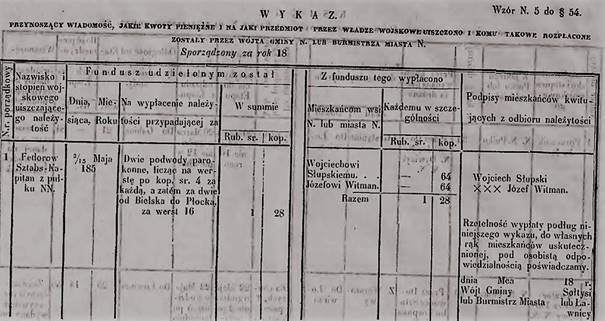 Wzór N. 5 do § 54.
WYKAZ.
PRZYNOSZĄCY WIADOMOŚĆ, JAKIE KWOTY PIENIĘŻNE I NA JAKI PRZEDMIOT PRZEZ WŁADZE WOJSKOWE UISZCZONO I KOMU TAKOWE ROZPŁACONE
ZOSTAŁY PRZEZ WÓJTA GMINY N. LUB BURMISTRZA MIASTA N.
Sporządzony za rok 18
N-r. porządkowy
Nazwisko i
stopień woj-
skowego
uiszczające-
go należy-
tość
Fundusz udzielonym został
Dnia, Mie-
siąca, Roku
Na wypłacenie należy-
tości przypadającej za
W summie
Rub. sr. kop.
Z funduszu tego wypłacono
Mieszkańcom wsi
N. lub miasta N.
Każdemu w szcze-
gólności
Rub. sr. kop.
Podpisy mieszkańców kwitu-
jących z odbioru należytości
1
Fedorow
Sztabs-Ka-
pitan z puł-
ku NN.
3/15 Maja
185
Dwie podwody paro-
konne, licząc na wer-
stę po kop. sr. 4 za
każdą, a zatem za dwie
od Bielska do Płocka,
za werst 16
1 28
Wojciechowi
Słupskiemu. . . — 64
Józefowi Witman. — 64
Razem 1 28
Wojciech Słupski
××× Józef Witman.
Rzetelność wypłaty podług ni-
niejszego wykazu, do własnych
rąk mieszkańców uskutecz-
nionej, pod osobistą odpo-
wiedzialnością poświadczamy.
dnia Mca 18 r.
Wójt Gminy Sołtysi
lub Burmistrz Miasta lub Ła-
wnicy